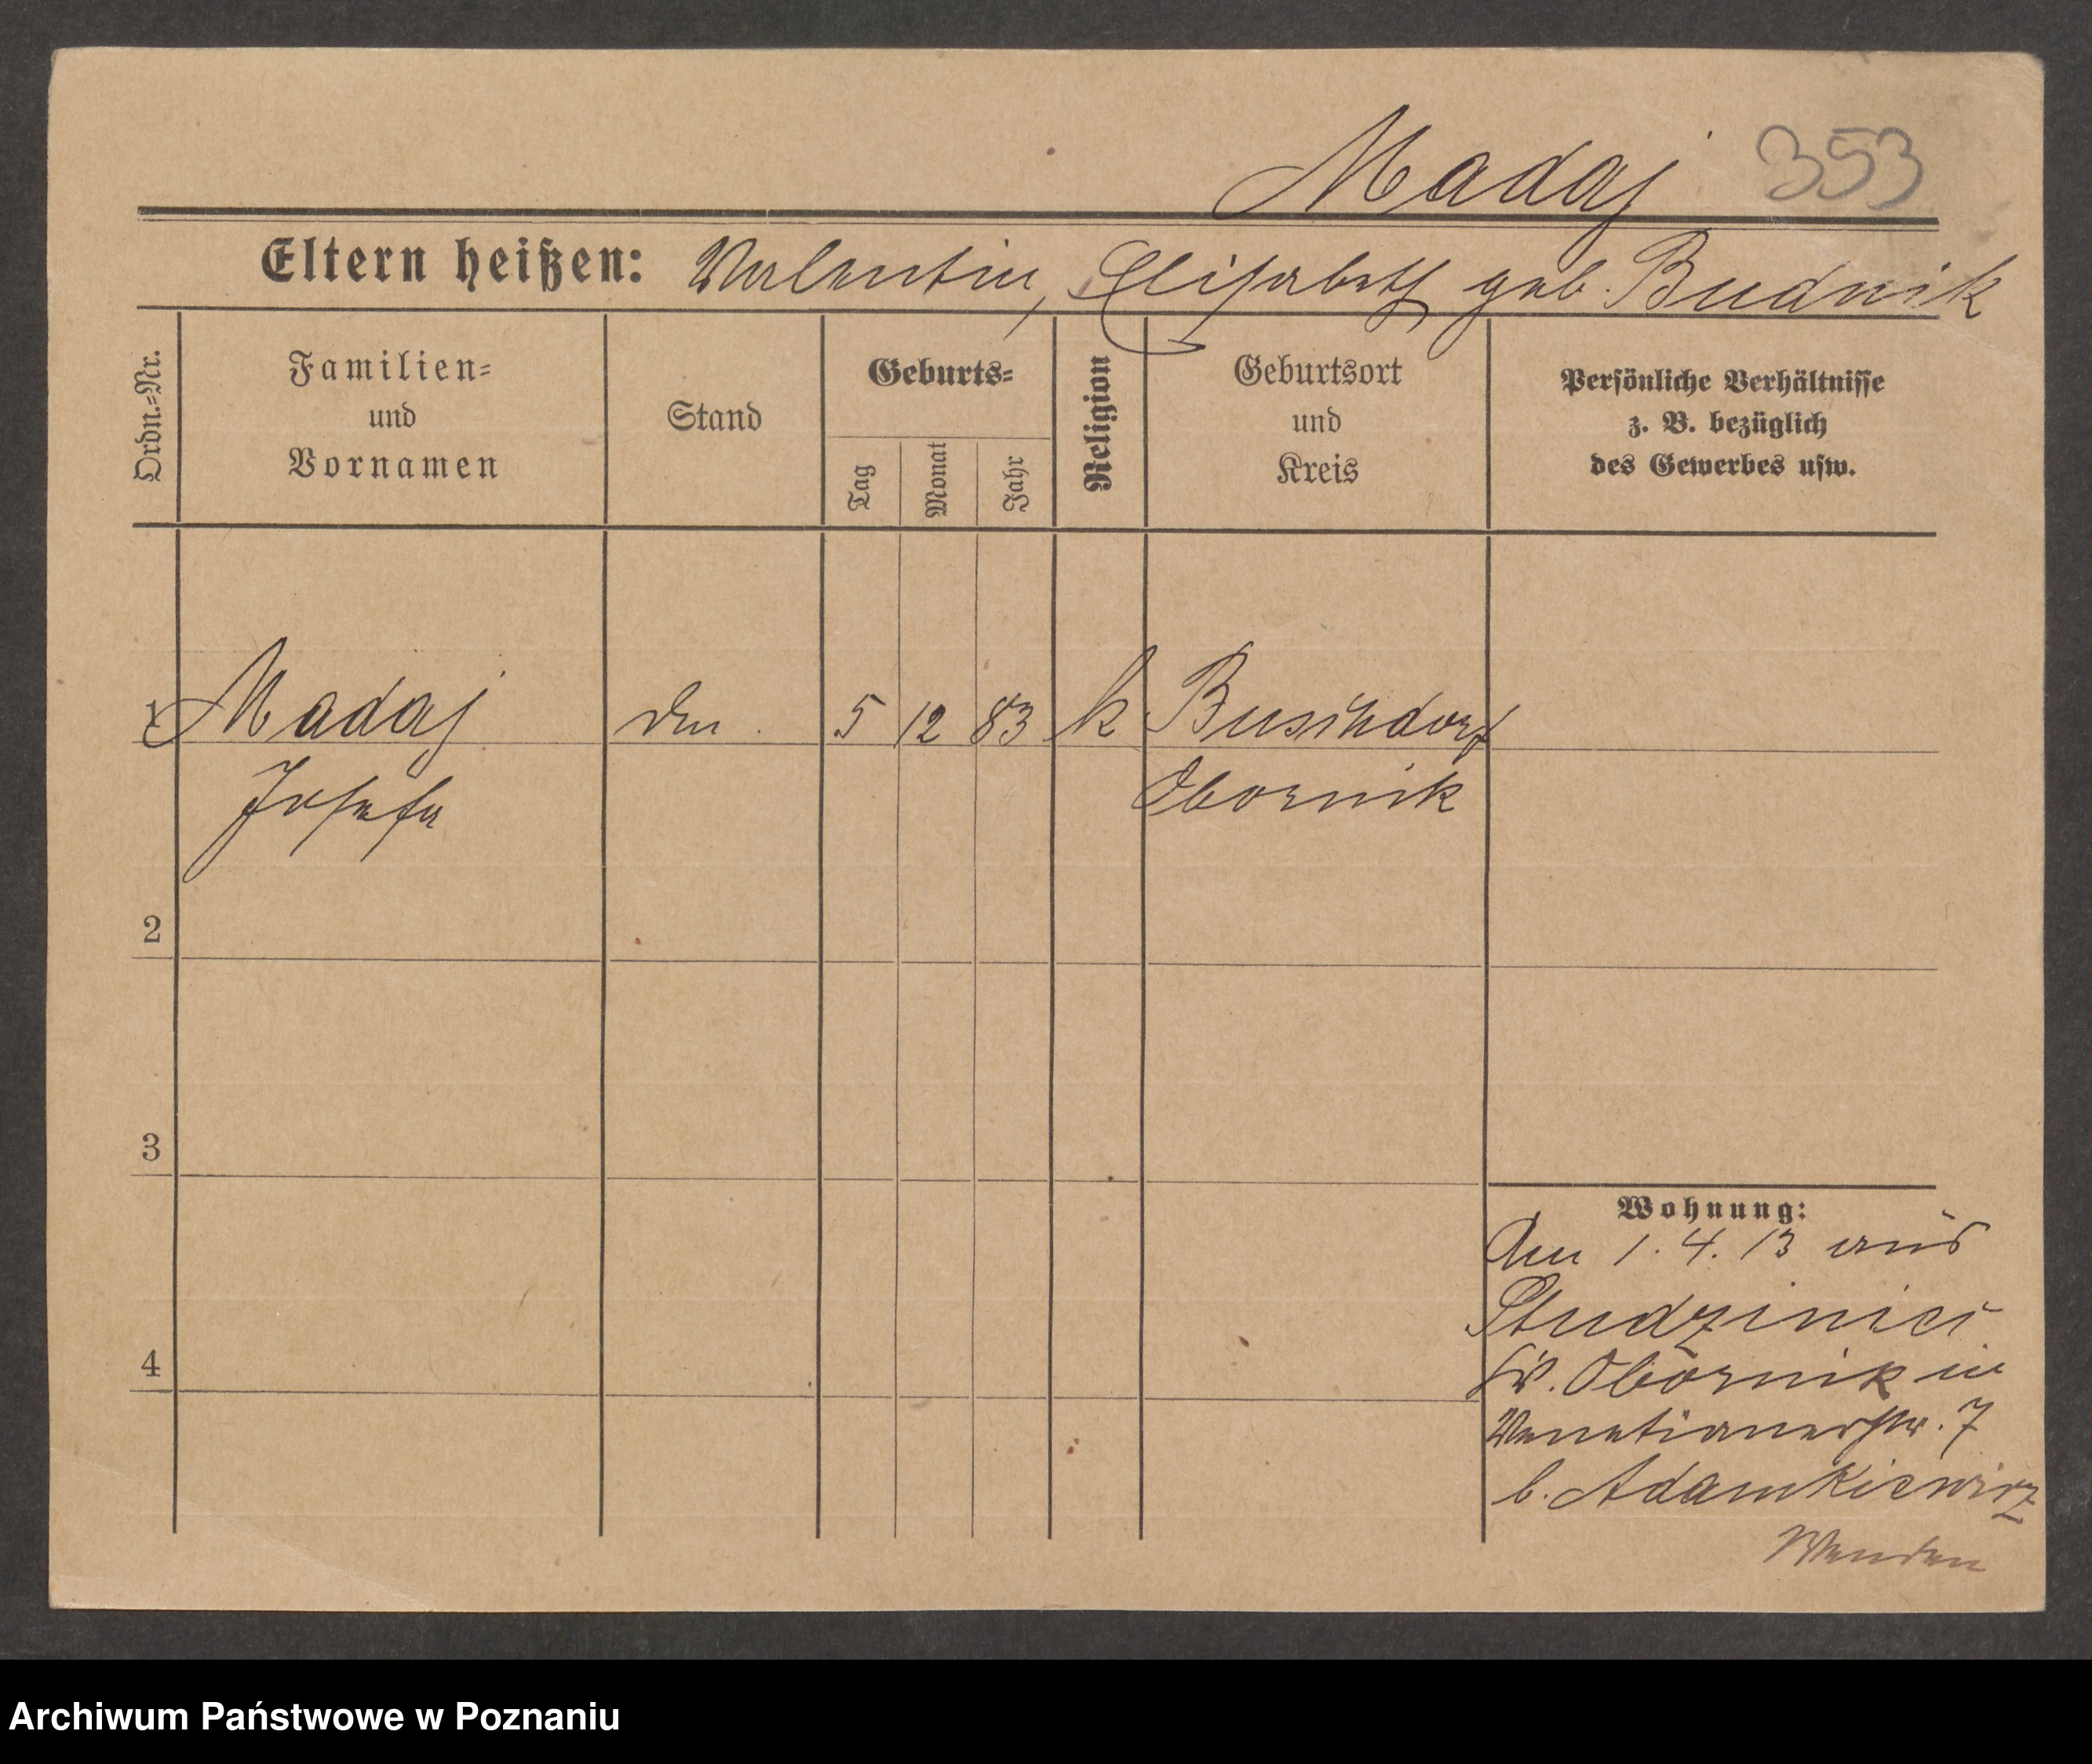 Madaj 353
Eltern heißen: Valentin, Elisabeth geb. Budnik
Ordn.=Nr.
Familien=
und
Vornamen
Stand
Geburts=
Tag
Monat
Jahr
Religion
Geburtsort
und
Kreis
Persönliche Verhältnisse
z. B. bezüglich
des Gewerbes usw.
1 Madaj 5 12 83 k Buschdorf
Josefa Obornik
2
3
4
Wohnung:
Am 1. 4. 13 aus
Studziniec
Kr. Obornik in
Venetianerstr. 7
b. Adamkiewicz
Wenden
Archiwum Państwowe w Poznaniu